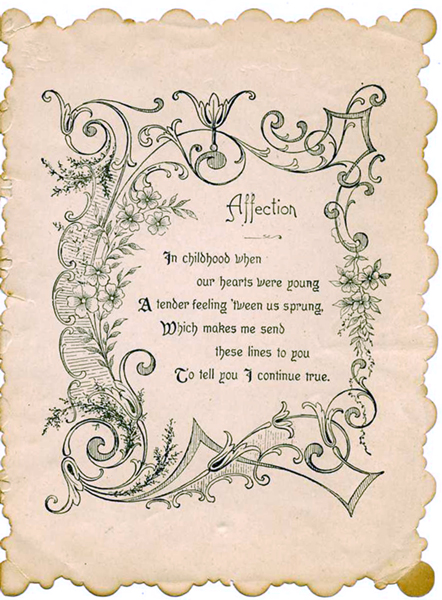 Affection
In childhood when
our hearts were young
A tender feeling 'tween us sprung,
Which makes me send
these lines to you
To tell you I continue true.